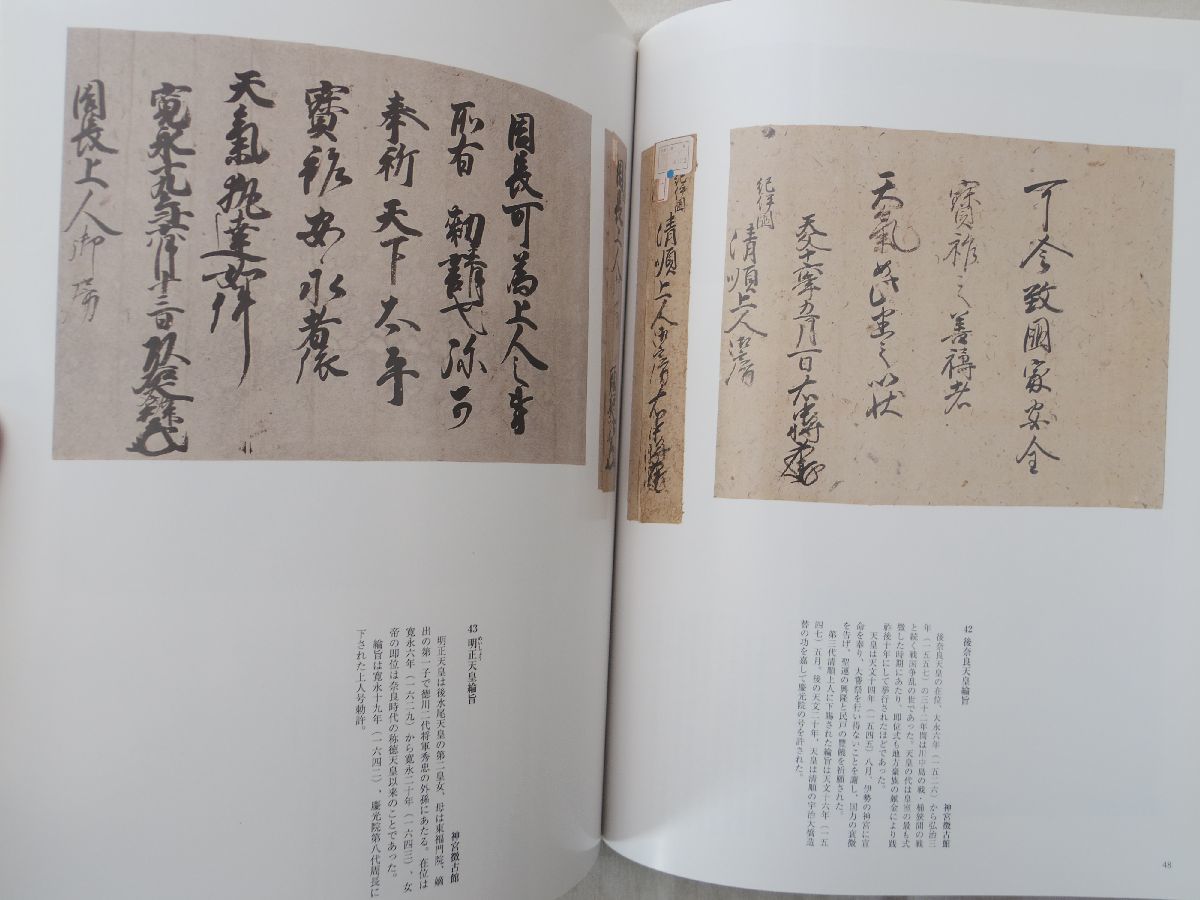 可令致国家安全
宝祚之善祷者
天氣如此悉之以状
天文十六年五月一日右中将
紀伊国
清順上人御房
紀伊国
清順上人御房右中将
42 後奈良天皇綸旨
神宮徴古館
後奈良天皇の在位、大永六年（一五二六）から弘治三
年（一五五七）の三十二年間は川中島の戦・桶狭間の戦
と続く戦国争乱の世であった。天皇の代は皇室の最も式
微した時期にあたり、即位式も地方豪族の献金により践
祚後十年にして挙行されたほどであった。
天皇は天文十四年（一五四五）八月、伊勢の神宮に宣
命を奉り、大嘗祭を行い得ないことを謝し、国力の衰微
を告げ、聖運の興隆と民戸の豊饒を祈願された。
第三代清順上人に下賜された綸旨は天文十六年（一五
四七）五月。後の天文二十年、天皇は清順の宇治大橋造
替の功を嘉して慶光院の号を許された。
48
周長可為上人之事
所有 勅請也弥可
奉祈天下太平
寶祚安永者依
天氣執達如件
寛永十九年
周長上人御房
43 明正天皇綸旨
めいしょう
神宮徴古館
明正天皇は後水尾天皇の第二皇女、母は東福門院、嫡
出の第一子で徳川二代将軍秀忠の外孫にあたる。在位は
寛永六年（一六二九）から寛永二十年（一六四三）、女
帝の即位は奈良時代の称徳天皇以来のことであった。
綸旨は寛永十九年（一六四二）、慶光院第八代周長に
下された上人号勅許。